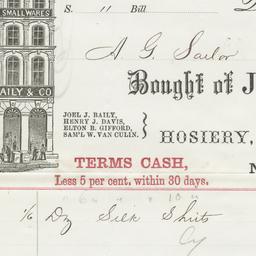 S. 11 Bill.
SMALL WARES
A. G. Sailor
AILY & CO
Bought of J
JOEL J. BAILY,
HENRY J. DAVIS,
ELTON B. GIFFORD,
SAM'L W. VAN CULIN.
HOSIERY,
TERMS CASH,
Less 5 per cent. within 30 days.
N
1/6 Dz Silk Shirts